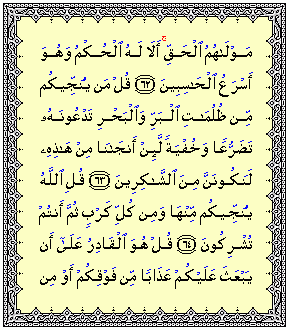 مَوْلَىٰهُمُ ٱلْحَقِّ ۚ أَلَا لَهُ ٱلْحُكْمُ وَهُوَ
أَسْرَعُ ٱلْحَـٰسِبِينَ ٦٢ قُلْ مَن يُنَجِّيكُم
مِّن ظُلُمَـٰتِ ٱلْبَرِّ وَٱلْبَحْرِ تَدْعُونَهُۥ
تَضَرُّعًا وَخُفْيَةً لَّئِنْ أَنجَىٰنَا مِنْ هَـٰذِهِۦ
لَنَكُونَنَّ مِنَ ٱلشَّـٰكِرِينَ ٦٣ قُلِ ٱللَّهُ
يُنَجِّيكُم مِّنْهَا وَمِن كُلِّ كَرْبٍ ثُمَّ أَنتُمْ
تُشْرِكُونَ ٦٤ قُلْ هُوَ ٱلْقَادِرُ عَلَىٰٓ أَن
يَبْعَثَ عَلَيْكُمْ عَذَابًا مِّن فَوْقِكُمْ أَوْ مِن